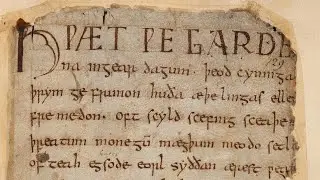 HǷÆT ǷE GARDE
na ingear dagum. þeod cyninga
þrym ge frunon huða æþelingas elle
fremedon. oft scyld scefing sceaþe
þreatum monegū mægþum meodo setl
ofteah egsode eorl syððan ærest